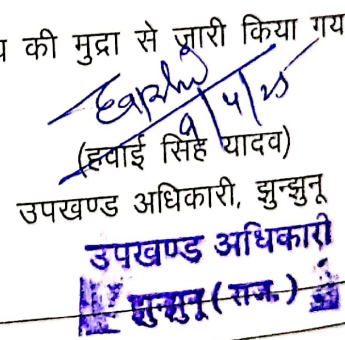 की मुद्रा से जारी किया गय
9/4/25
(हवाई सिंह यादव)
उपखण्ड अधिकारी, झुन्झुनू
उपखण्ड अधिकारी
झुन्झुनू (राज.)